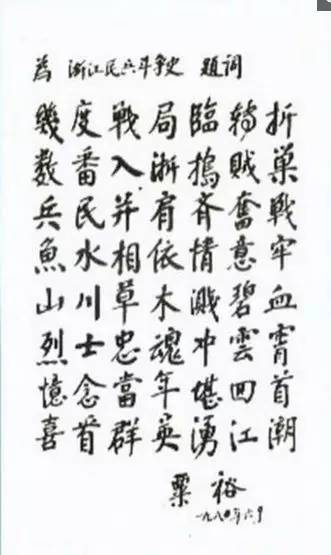 為 浙江民兵斗争史 題詞
幾度戰局臨轉折
數番入浙搗賊巢
兵民并肩齊奮戰
魚水相依情意牢
山川草木濺碧血
烈士忠魂冲雲霄
憶念當年堪回首
喜看群英湧江潮
粟裕
一九八〇年六月